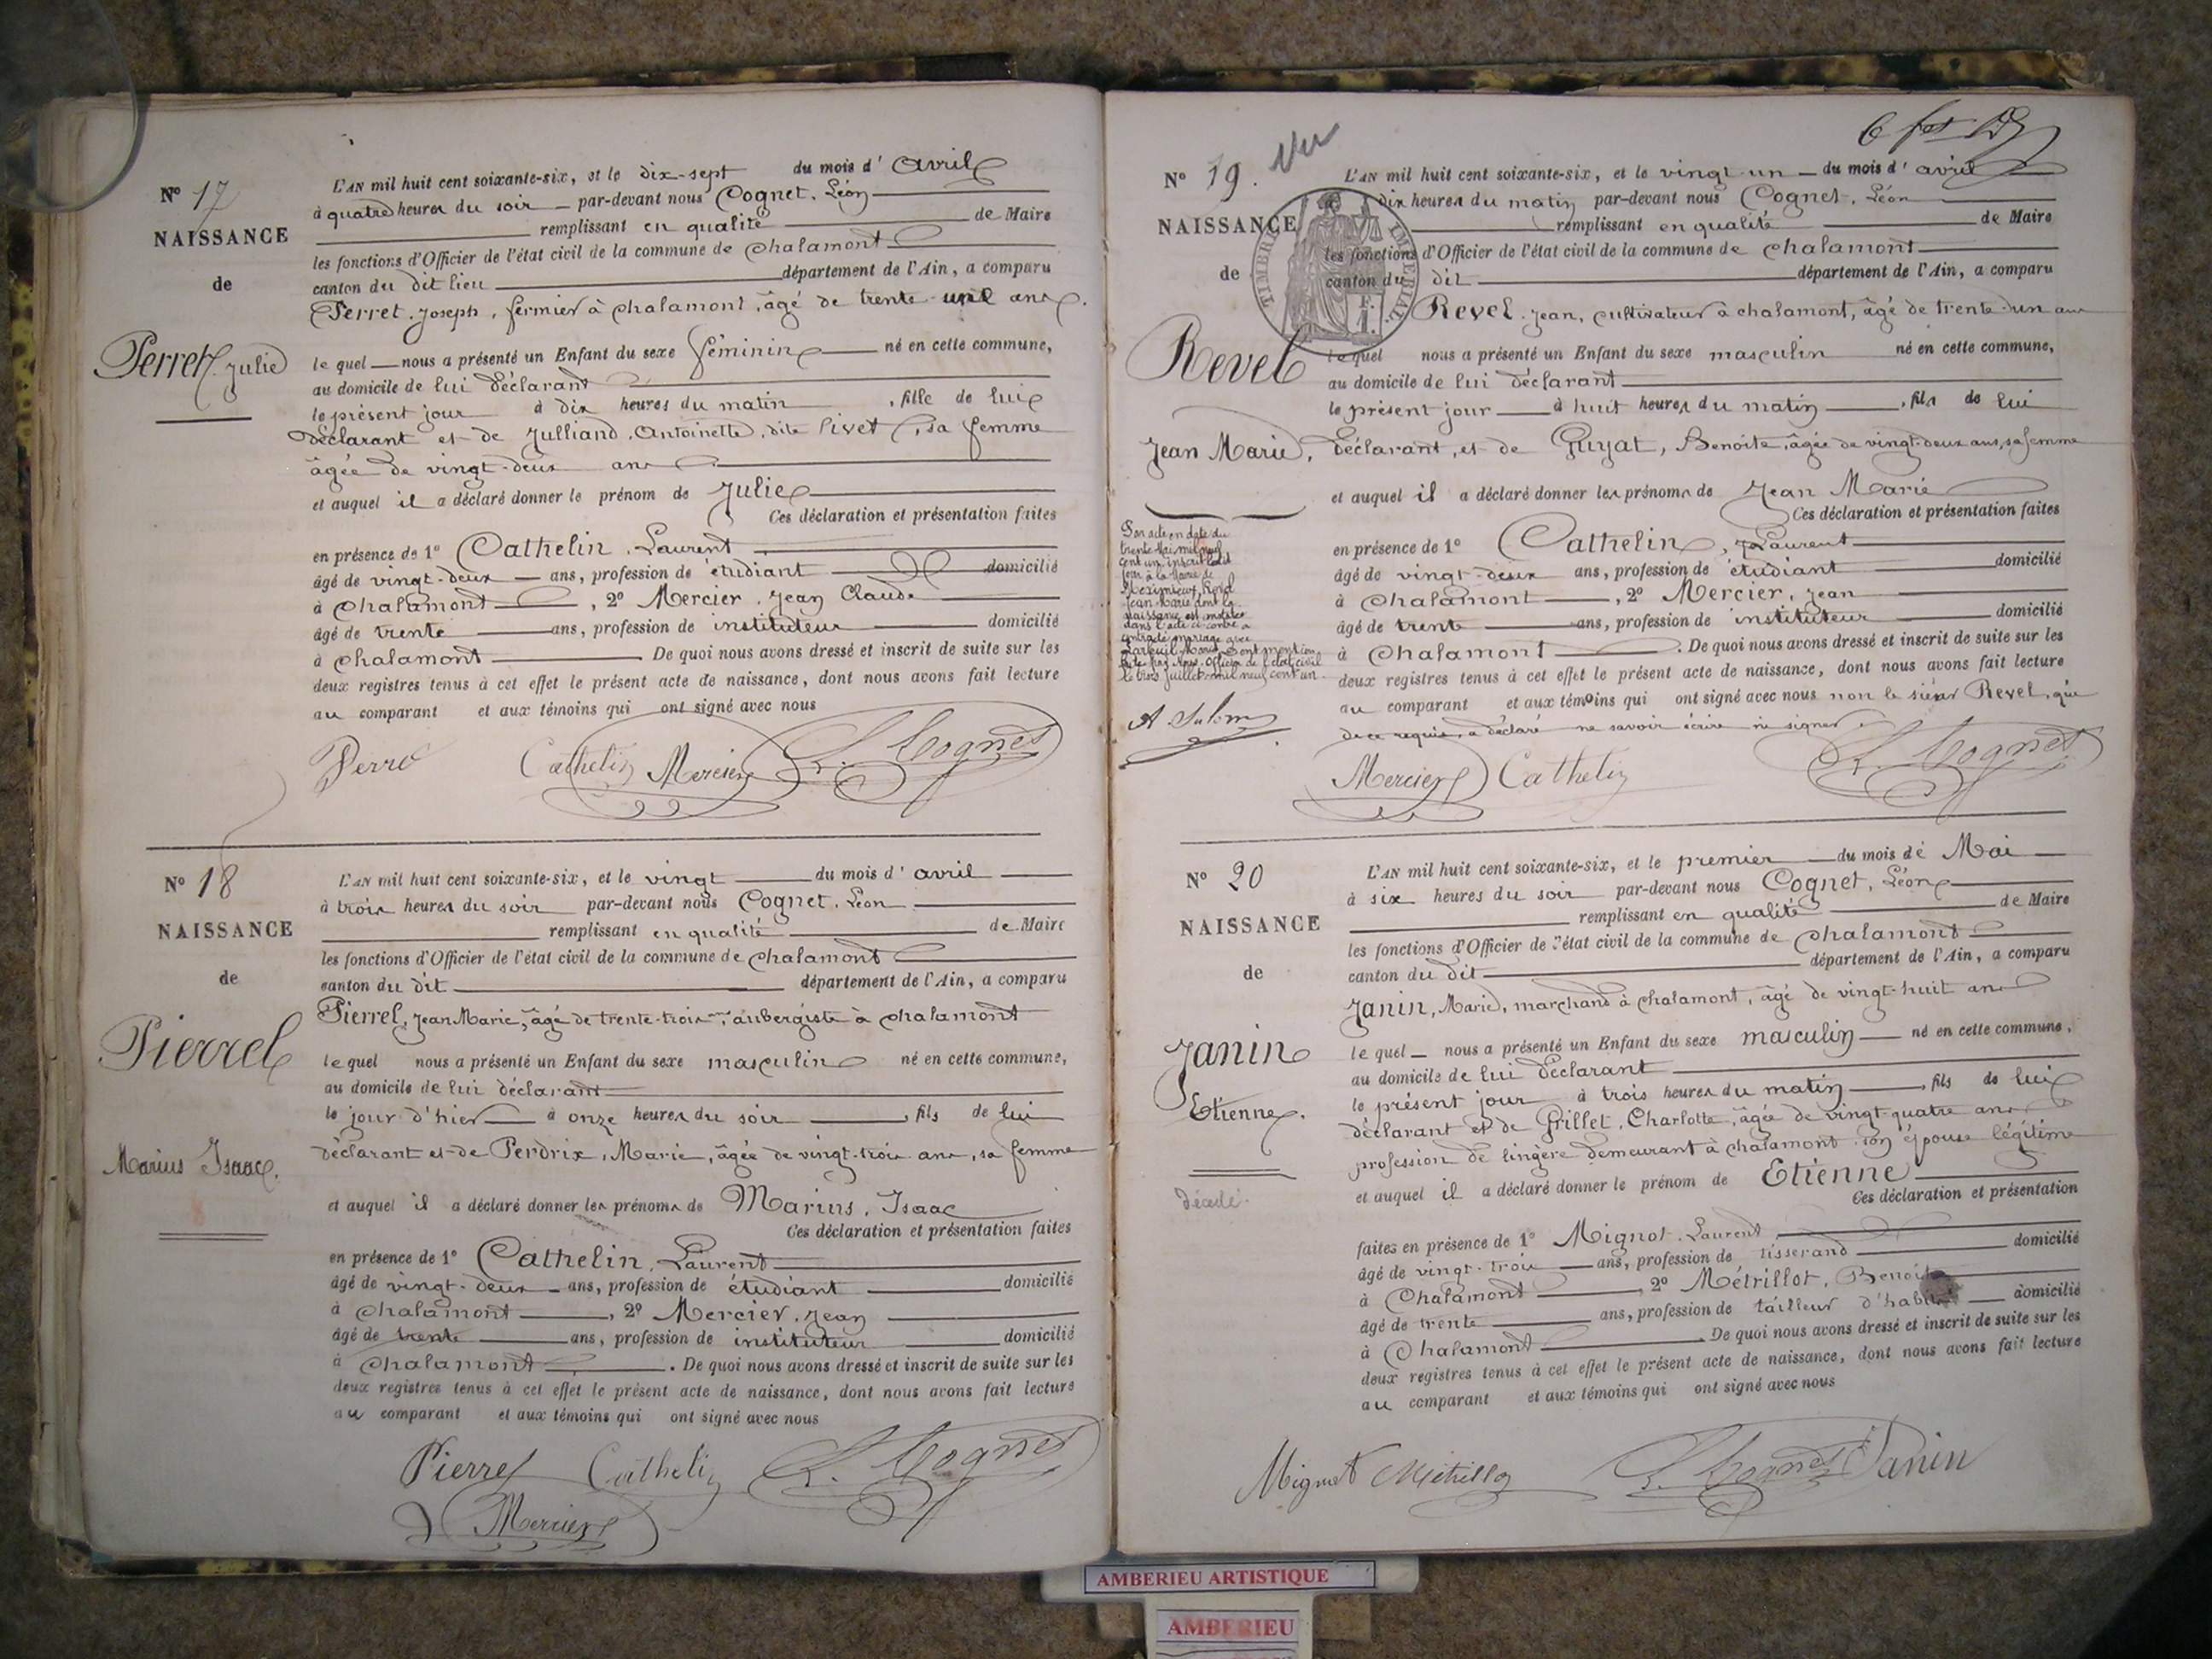 N° 17
NAISSANCE
de
Perret, Julie
L'AN mil huit cent soixante-six, et le dix-sept du mois d'avril
à quatre heures du soir par-devant nous Cognet, Léon
remplissant en qualité de Maire
les fonctions d'Officier de l'état civil de la commune de Chalamont
canton du dit lieu département de l'Ain, a comparu
Perret, Joseph, fermier à Chalamont, âgé de trente-un ans.
le quel nous a présenté un Enfant du sexe féminin né en cette commune,
au domicile de lui déclarant
le présent jour à dix heures du matin, fille de lui
déclarant et de Julliand, Antoinette, dite Livet, sa femme
âgée de vingt-deux ans
et auquel il a déclaré donner le prénom de Julie
Ces déclaration et présentation faites
en présence de 1° Cathelin, Laurent
âgé de vingt-deux ans, profession de étudiant domicilié
à Chalamont, 2° Mercier, Jean Claude
âgé de trente ans, profession de instituteur domicilié
à Chalamont De quoi nous avons dressé et inscrit de suite sur les
deux registres tenus à cet effet le présent acte de naissance, dont nous avons fait lecture
au comparant et aux témoins qui ont signé avec nous
Perret Cathelin Mercier L. Cognet
N° 18
NAISSANCE
de
Pierrel
Marius Isaac.
L'AN mil huit cent soixante-six, et le vingt du mois d'avril
à trois heures du soir par-devant nous Cognet, Léon
remplissant en qualité de Maire
les fonctions d'Officier de l'état civil de la commune de Chalamont
canton du dit département de l'Ain, a comparu
Pierrel, Jean Marie, âgé de trente-trois ans, aubergiste à Chalamont
le quel nous a présenté un Enfant du sexe masculin né en cette commune,
au domicile de lui déclarant
le jour d'hier à onze heures du soir, fils de lui
déclarant et de Perdrix, Marie, âgée de vingt-trois ans, sa femme
et auquel il a déclaré donner les prénoms de Marius, Isaac
Ces déclaration et présentation faites
en présence de 1° Cathelin, Laurent
âgé de vingt-deux ans, profession de étudiant domicilié
à Chalamont, 2° Mercier, Jean
âgé de trente ans, profession de instituteur domicilié
à Chalamont. De quoi nous avons dressé et inscrit de suite sur les
deux registres tenus à cet effet le présent acte de naissance, dont nous avons fait lecture
au comparant et aux témoins qui ont signé avec nous
Pierrel Cathelin L. Cognet
Mercier
N° 19. Vu
NAISSANCE
de
TIMBRE IMPÉRIAL
Revel
Jean Marie,
L'AN mil huit cent soixante-six, et le vingt-un du mois d'avril
dix heures du matin par-devant nous Cognet, Léon
remplissant en qualité de Maire
les fonctions d'Officier de l'état civil de la commune de Chalamont
canton du dit département de l'Ain, a comparu
Revel, Jean, cultivateur à Chalamont, âgé de trente-un ans
le quel nous a présenté un Enfant du sexe masculin né en cette commune,
au domicile de lui déclarant
le présent jour à huit heures du matin, fils de lui
déclarant, et de Guyat, Benoite, âgée de vingt-deux ans, sa femme
et auquel il a déclaré donner les prénoms de Jean Marie
Ces déclaration et présentation faites
en présence de 1° Cathelin, Laurent
âgé de vingt-deux ans, profession de étudiant domicilié
à Chalamont, 2° Mercier, Jean
âgé de trente ans, profession de instituteur domicilié
à Chalamont. De quoi nous avons dressé et inscrit de suite sur les
deux registres tenus à cet effet le présent acte de naissance, dont nous avons fait lecture
au comparant et aux témoins qui ont signé avec nous non le sieur Revel, qui
de ce requis, a déclaré ne savoir écrire ni signer.
Mercier Cathelin L. Cognet
Par acte en date du
trente Mai mil neuf
cent un, inscrit ledit
jour à la Mairie de
Meximieux, Revel
Jean Marie dont la
naissance est constatée
dans l'acte ci-contre a
contracté mariage avec
Marie. Dont mention
faite par Nous, Officier de l'état civil
le trois Juillet mil neuf cent un
N° 20
NAISSANCE
de
Janin
Etienne.
décédé.
L'AN mil huit cent soixante-six, et le premier du mois de Mai
à six heures du soir par-devant nous Cognet, Léon
remplissant en qualité de Maire
les fonctions d'Officier de l'état civil de la commune de Chalamont
canton du dit département de l'Ain, a comparu
Janin, Marie, marchand à Chalamont, âgé de vingt-huit ans
le quel nous a présenté un Enfant du sexe masculin né en cette commune,
au domicile de lui déclarant
le présent jour à trois heures du matin, fils de lui
déclarant et de Grillet, Charlotte, âgée de vingt-quatre ans
profession de lingère demeurant à Chalamont son épouse légitime
et auquel il a déclaré donner le prénom de Etienne
Ces déclaration et présentation
faites en présence de 1° Mignot, Laurent
âgé de vingt-trois ans, profession de tisserand domicilié
à Chalamont, 2° Métrillot, Benoit
âgé de trente ans, profession de tailleur d'habits domicilié
à Chalamont. De quoi nous avons dressé et inscrit de suite sur les
deux registres tenus à cet effet le présent acte de naissance, dont nous avons fait lecture
au comparant et aux témoins qui ont signé avec nous
Mignot Métrillot L. Cognet Janin
AMBERIEU ARTISTIQUE
AMBERIEU